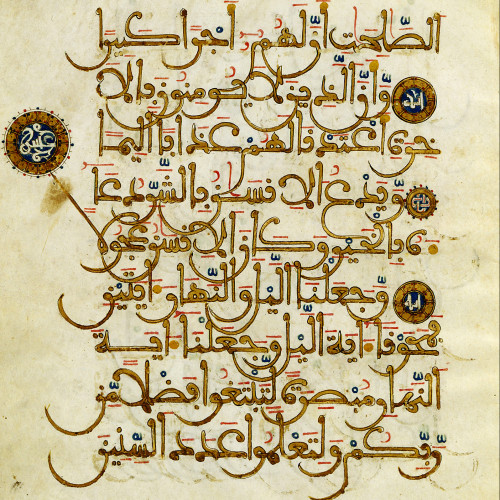 الصّٰلحٰت أنّ لهم أجرا كبيرا
وأنّ الذين لا يومنون بالا
اية
خرة أعتدنا لهم عذابا أليما
ويدع الانسٰن بالشّرّ دعا
ءه بالخير وكان الانسٰن عجولا
وجعلنا اليل والنّهار ءايتين
اية
فمحونا ءاية اليل وجعلنا ءاية
النّهار مبصرة لتبتغوا فضلا مّن
رّبّكم ولتعلموا عدد السّنين